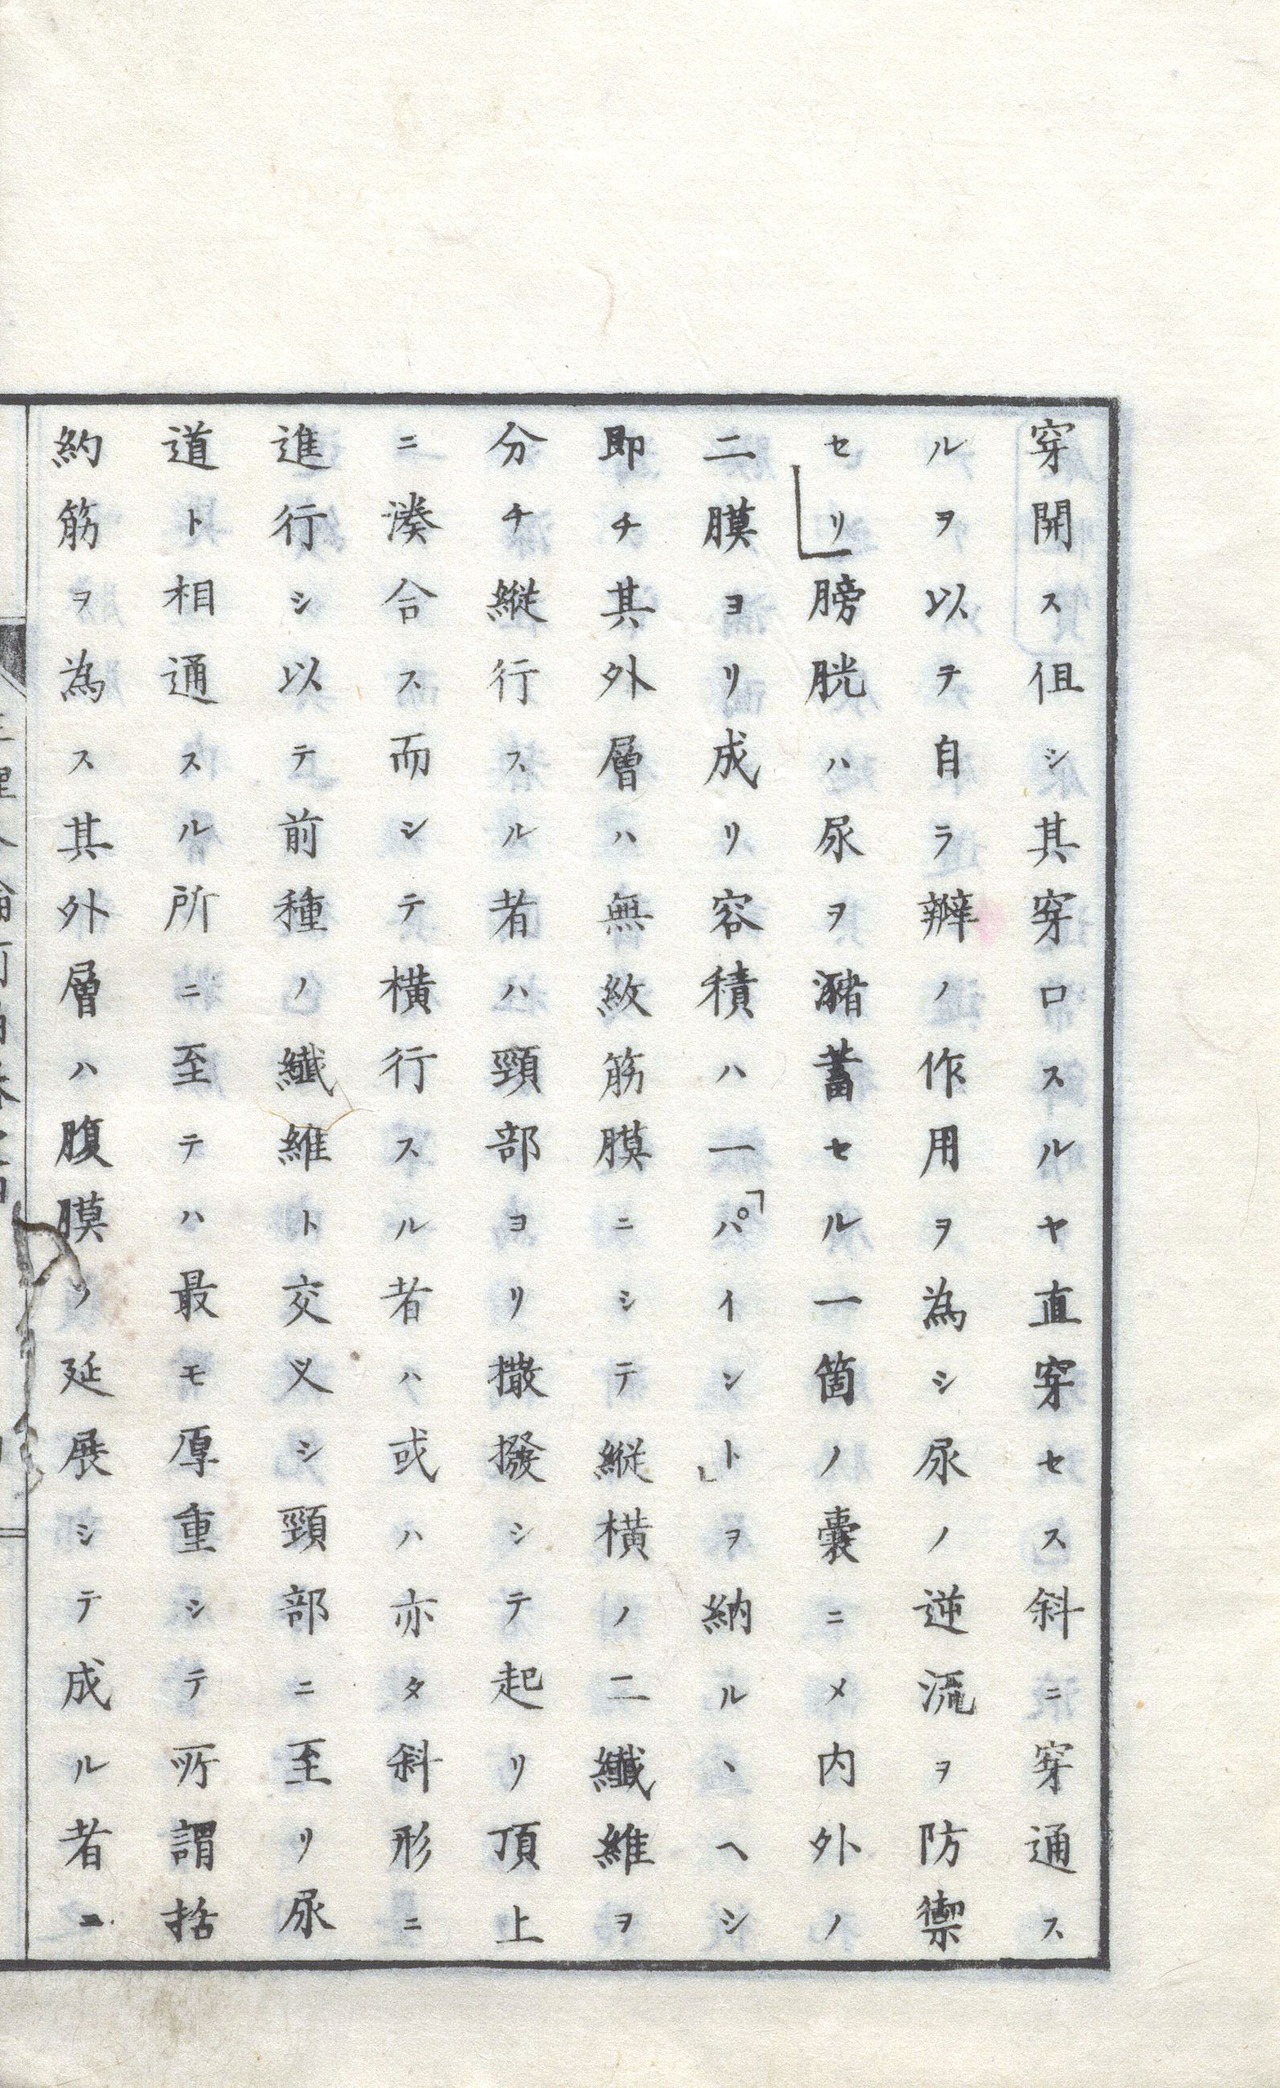 穿開ス但シ其穿口スルヤ直穿セス斜ニ穿通ス
ルヲ以テ自ラ瓣ノ作用ヲ為シ尿ノ逆流ヲ防禦
セリ膀胱ハ尿ヲ瀦蓄セル一箇ノ嚢ニメ内外ノ
二膜ヨリ成リ容積ハ一「パイント」ヲ納ルヽヘシ
即チ其外層ハ無紋筋膜ニシテ縦横ノ二纖維ヲ
分チ縦行スル者ハ頸部ヨリ撒撥シテ起リ頂上
ニ湊合ス而シテ横行スル者ハ或ハ亦タ斜形ニ
進行シ以テ前種ノ纖維ト交叉シ頸部ニ至リ尿
道ト相通スル所ニ至テハ最モ厚重シテ所謂括
約筋ヲ為ス其外層ハ腹膜ノ延展シテ成ル者ニ